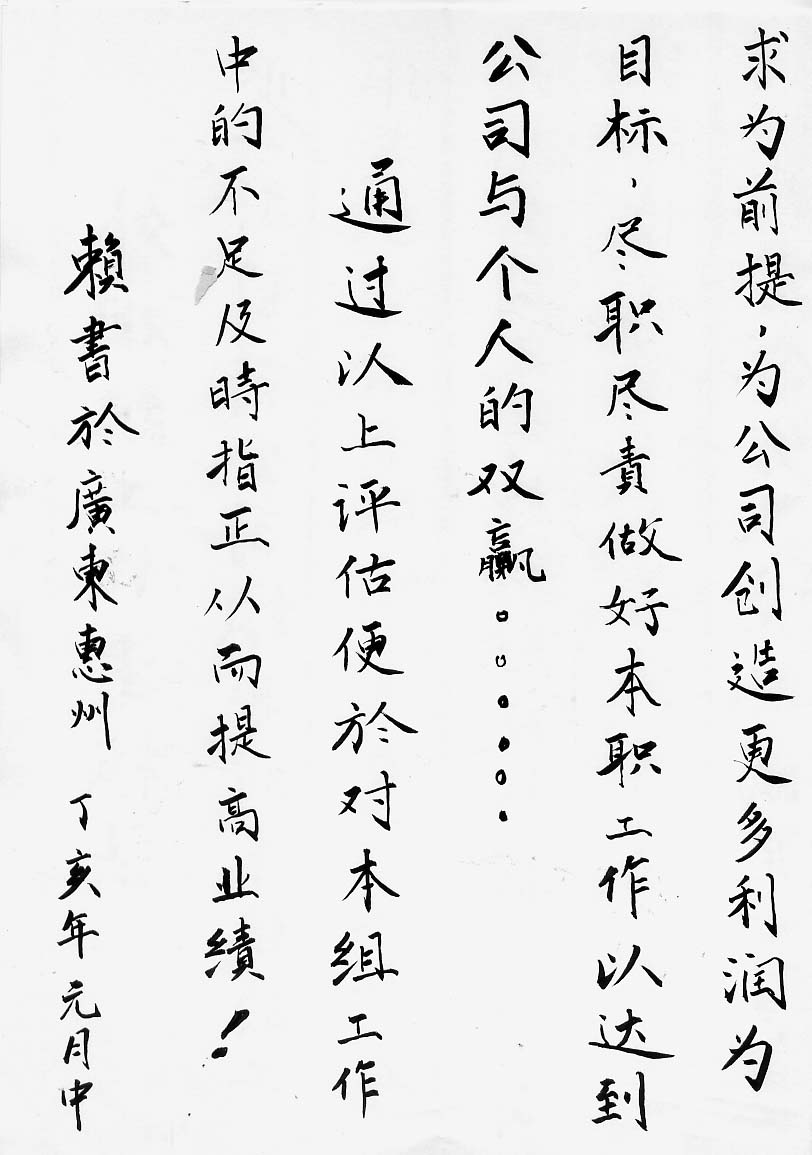 求为前提，为公司创造更多利润为
目标，尽职尽責做好本职工作以达到
公司与个人的双赢。。。。。。
通过以上评估便於对本组工作
中的不足及時指正从而提高业績！
賴書於廣東惠州 丁亥年元月中